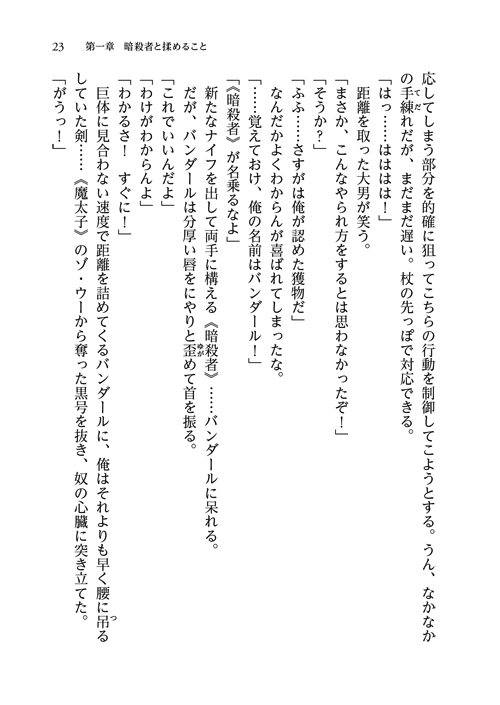 23　第一章　暗殺者と揉めること
応してしまう部分を的確に狙ってこちらの行動を制御してこようとする。うん、なかなか
の手練れだが、まだまだ遅い。杖の先っぽで対応できる。
「はっ……はははは！」
距離を取った大男が笑う。
「まさか、こんなやられ方をするとは思わなかったぞ！」
「そうか？」
「ふふ……さすがは俺が認めた獲物だ」
なんだかよくわからんが喜ばれてしまったな。
「……覚えておけ、俺の名前はバンダール！」
「《暗殺者》が名乗るなよ」
新たなナイフを出して両手に構える《暗殺者》……バンダールに呆れる。
だが、バンダールは分厚い唇をにやりと歪めて首を振る。
「これでいいんだよ」
「わけがわからんよ」
「わかるさ！　すぐに！」
巨体に見合わない速度で距離を詰めてくるバンダールに、俺はそれよりも早く腰に吊る
していた剣……《魔太子》のゾ・ウーから奪った黒号を抜き、奴の心臓に突き立てた。
「がうっ！」